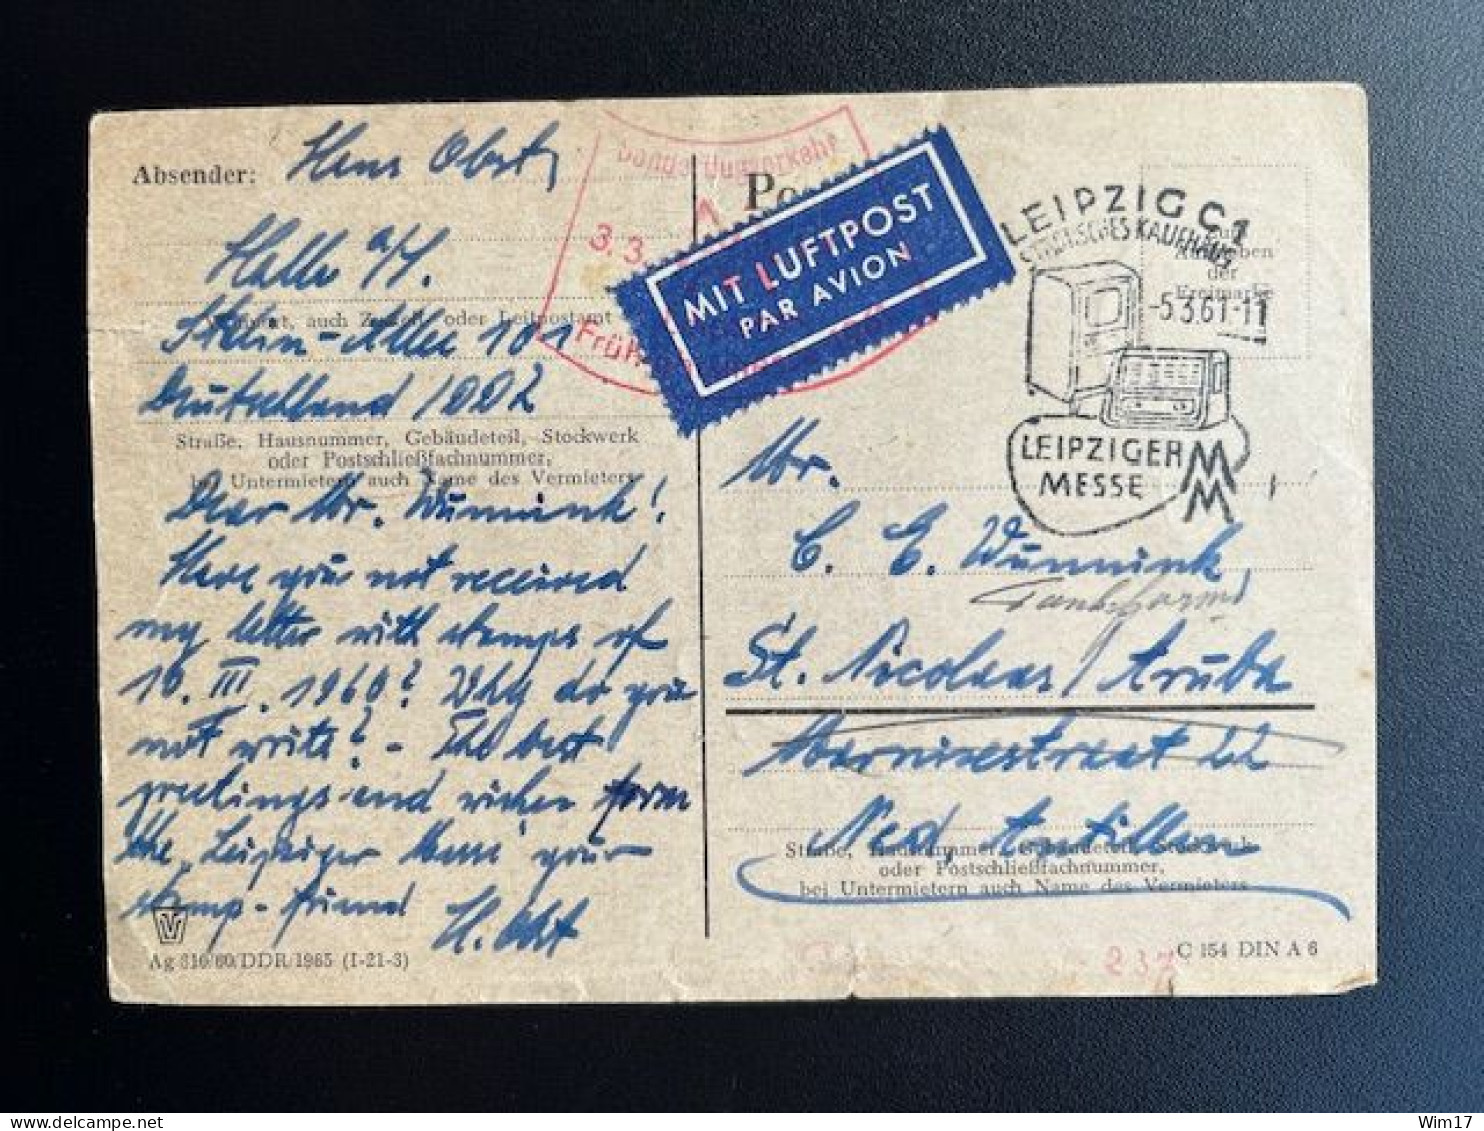 Absender: Hans Obst,
Halle a/S.
auch oder Leitpostamt
Stein-Allee 101
Deutschland / DDR
Straße, Hausnummer, Gebäudeteil, Stockwerk
oder Postschließfachnummer,
bei Untermietern auch Name des Vermieters
Dear Mr. Wunnink!
Have you not received
my letter with stamps of
10. III. 1960? Why do you
not write? - The best
greetings and wishes form
the „Leipziger Messe" your
stamp-friend H. Obst
Ag 310/60/DDR/1985 (I-21-3)
3.3.
Früh
MIT LUFTPOST
PAR AVION
LEIPZIG C1
STÄDTISCHES KAUFHAUS
-5.3.61-11
LEIPZIGER
MESSE
MM
der
Freimarke
Mr.
C. E. Wunnink,
St. Nicolaas / Aruba
22
Ned. Antillen
Straße, Hausnummer, Gebäudeteil, Stockwerk
oder Postschließfachnummer,
bei Untermietern auch Name des Vermieters
C 154 DIN A 6
237
Wim17